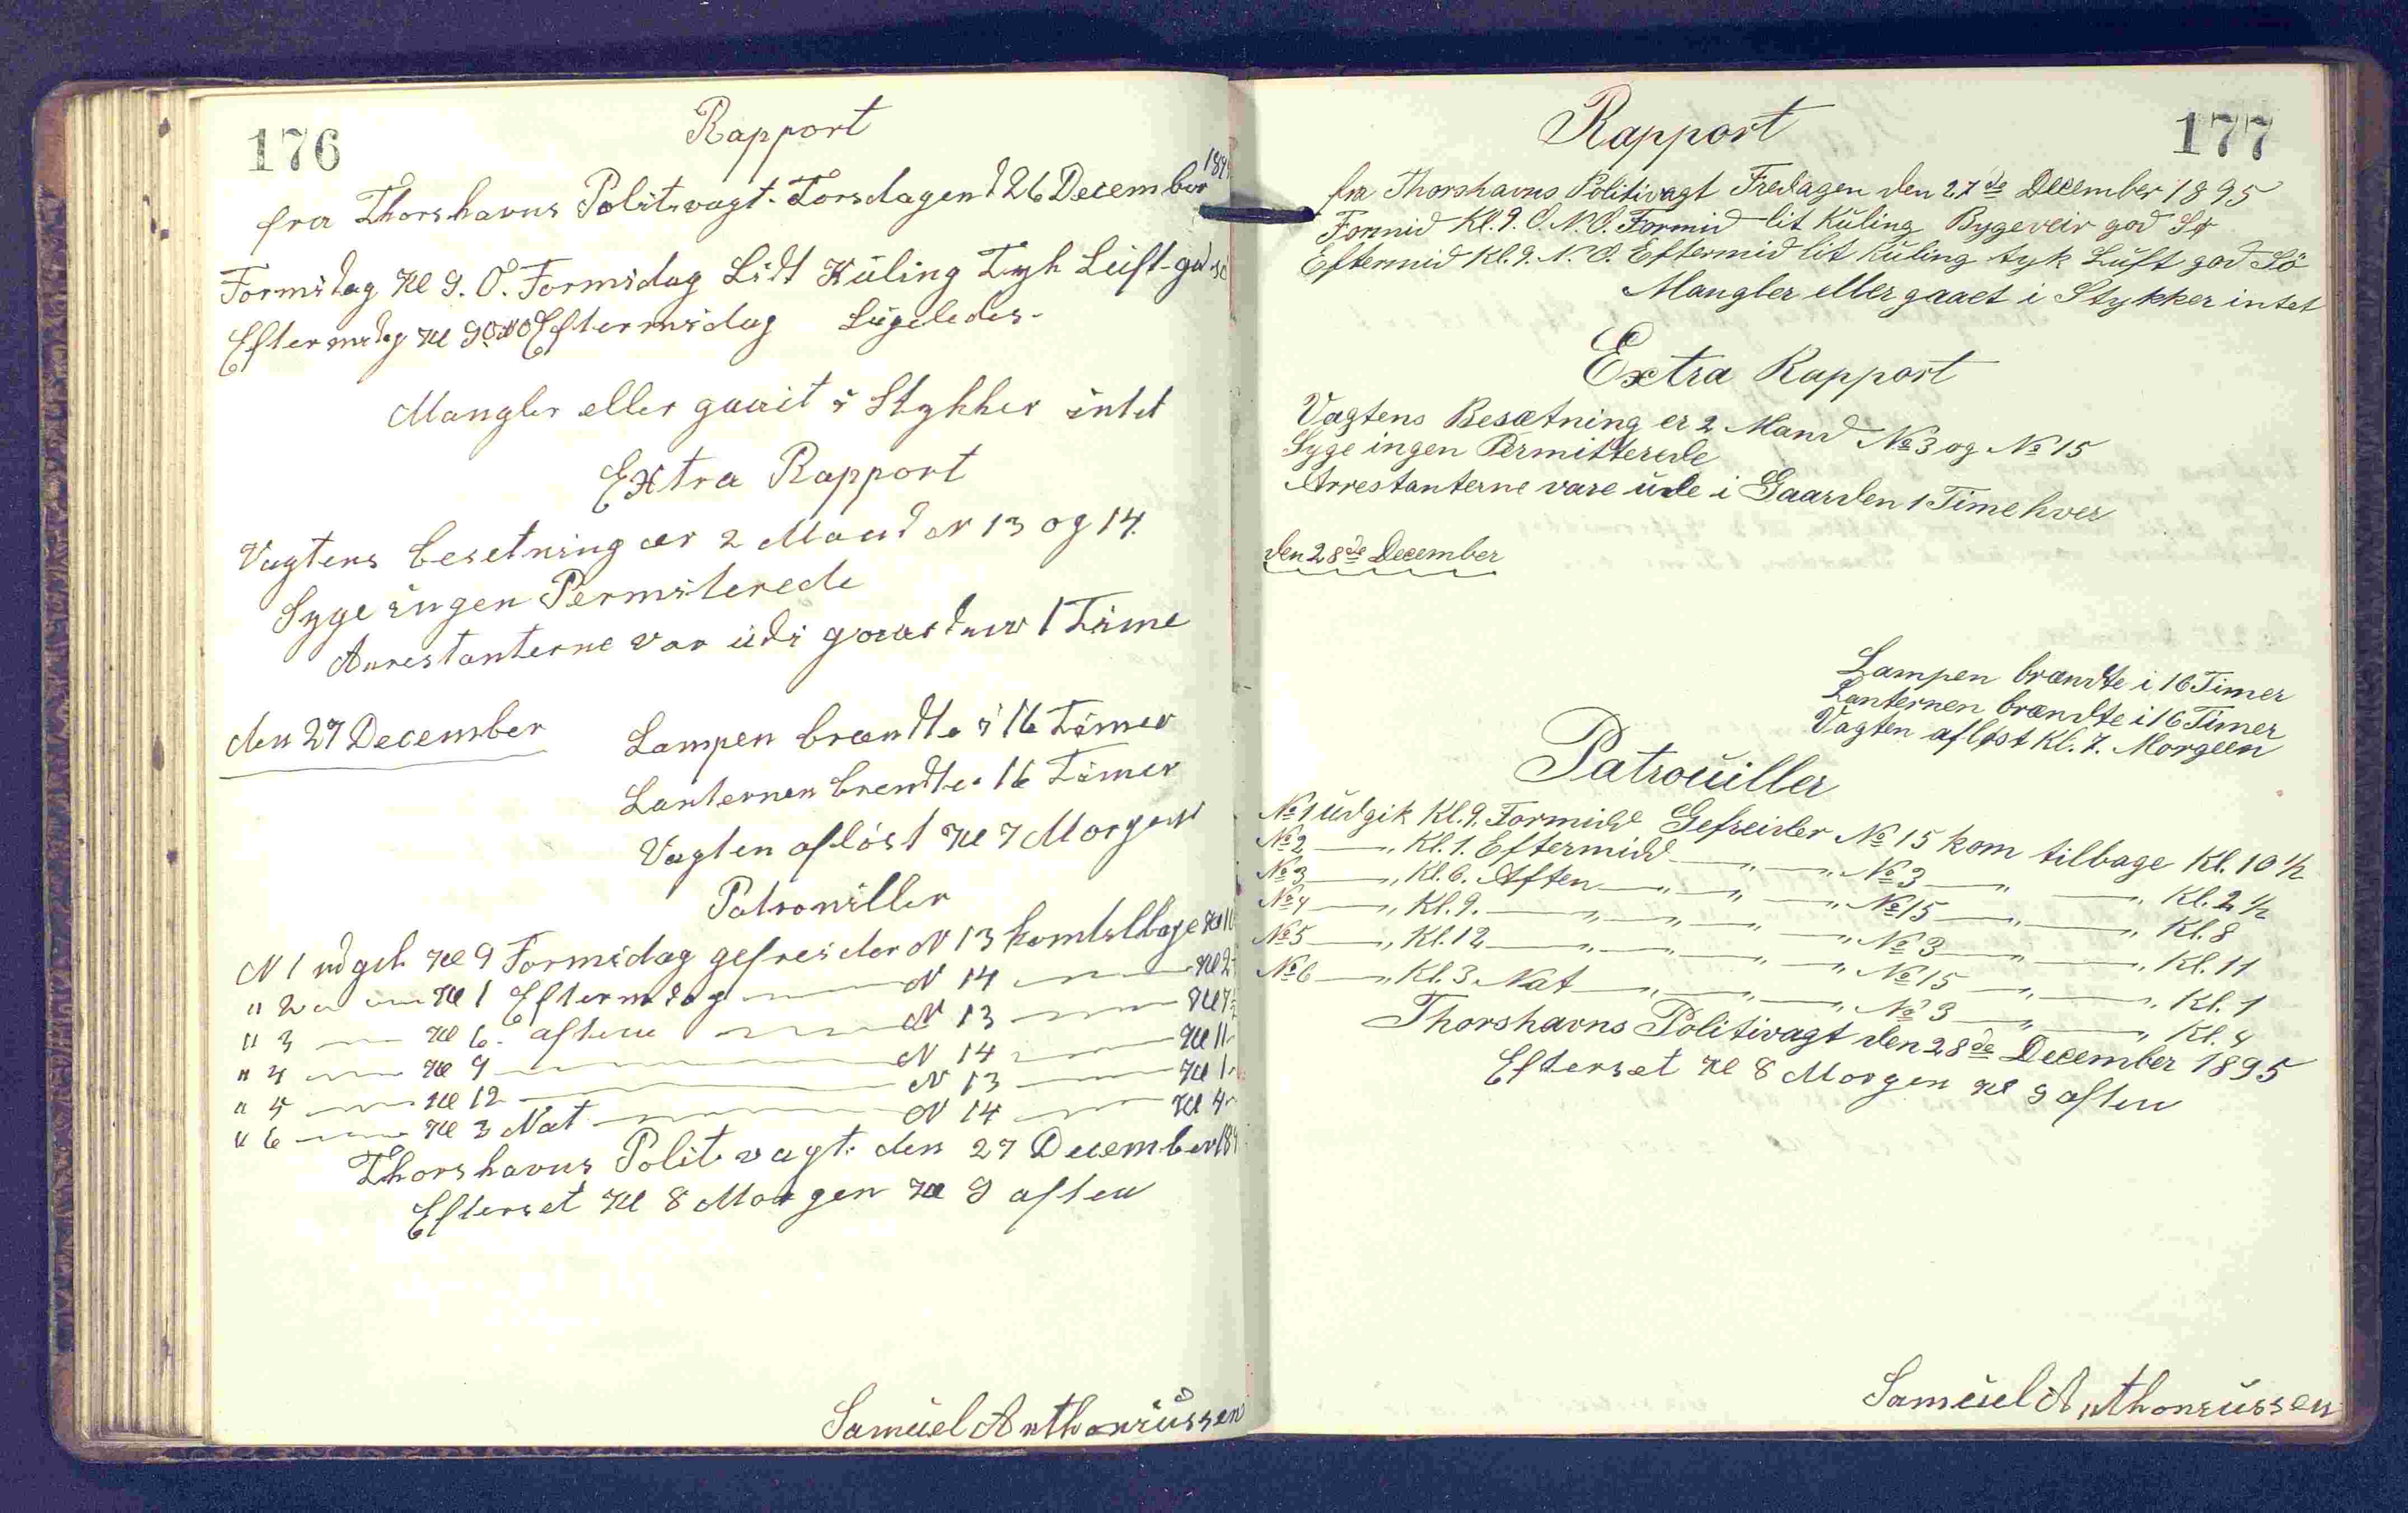 176
Rapport
fra Thorshavns Politivagt. Torsdagen d 26 December
Formidag Kl 9. O. Formidag Lidt Kuling Tyk Luft god
Eftermidag Kl 9 Eftermidag Ligeledes.
Mangler eller gaait i Stykker intet
Extra Rapport
Vagtens besetning ær 2 Mand N 13 og 14.
Syge ingen Permiterede
Arrestanterne var udi 1 Time
den 27 December
Lampen brændte i 16 Timer
Lanternen brendte i 16 Timer
Vagten afløst Kl 7 Morgen
Patrouiller
N 1 udgik Kl 9 Formidag gefreider N 13 kom tilbage Kl
" 2 Kl 1 Eftermidag N 14 Kl 2
" 3 Kl 6. aften N 13 Kl 7½
" 4 Kl 9 N 14 Kl 11
" 5 Kl 12 N 13 Kl 1
" 6 Kl 3 Nat N 14 Kl 4
Thorshavns Politivagt. den 27 December
Efterset Kl 8 Morgen Kl 9 aften
Samuel Anthoniussen
177
Rapport
fra Thorshavns Politivagt Fredagen den 27de December 1895
Formid Kl. 9. O.N.O. Formid lit Kuling Bygeveir god Sø
Eftermid Kl. 9. N.O. Eftermid lit Kuling tyk Luft god Sö
Mangler eller gaaet i Stykker intet
Extra Rapport
Vagtens Besætning er 2 Mand № 3 og № 15
Syge ingen Permitterede
Arrestanterne vare ude i Gaarden 1 Time hver
den 28de December
Lampen brændte i 16 Timer
Lanternen brændte i 16 Timer
Vagten afløst Kl. 7. Morgeen
Patrouiller
№ 1 udgik Kl. 9. Formidd Gefreider № 15 kom tilbage Kl. 10 ½
№ 2 —„ Kl. 1. Eftermidd —„ —„ № 3 —„ —„ Kl. 2 ½
№ 3 —„ Kl. 6. Aften —„ —„ —„ № 15 —„ —„ Kl. 8
№ 4 —„ Kl. 9. —„ —„ —„ № 3 —„ —„ Kl. 11
№ 5 —„ Kl. 12 —„ —„ —„ № 15 —„ —„ Kl. 1
№ 6 —„ Kl. 3. Nat —„ —„ —„ № 3 —„ —„ Kl. 4
Thorshavns Politivagt den 28de December 1895
Efterset Kl 8 Morgen Kl 9 aften
Samuel Anthoniussen